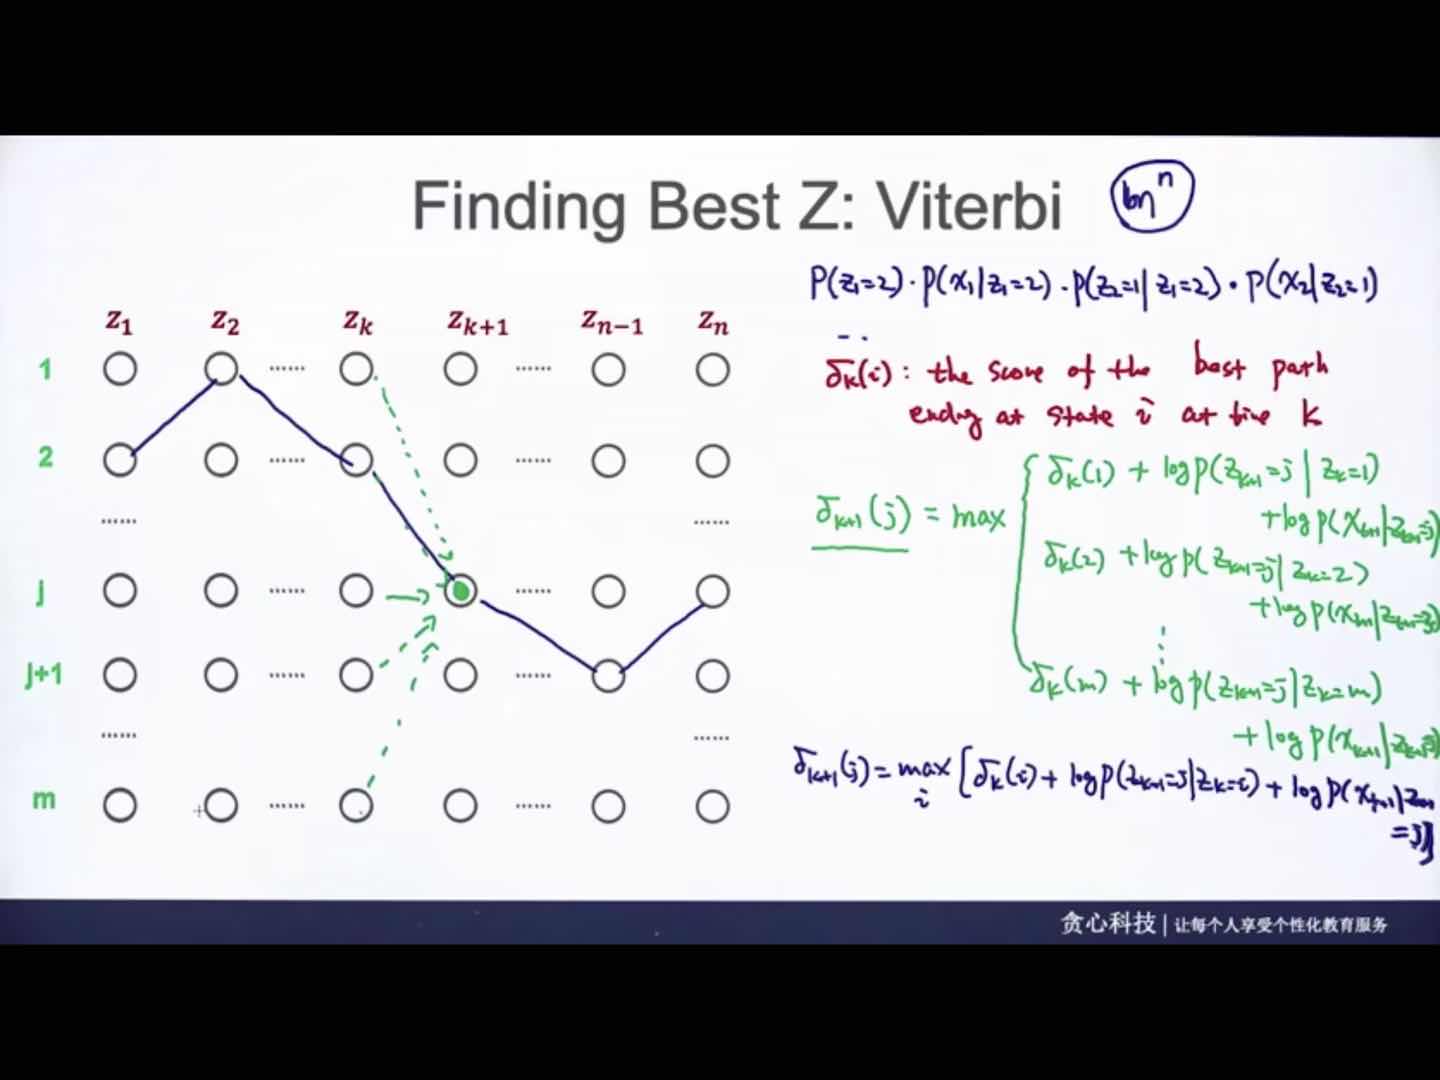 Finding Best Z: Viterbi
P(z₁=2)·p(x₁|z₁=2)·p(z₂=1|z₁=2)·p(x₂|z₂=1)
z₁ z₂ zₖ zₖ₊₁ zₙ₋₁ zₙ
δₖ(i): the score of the best path
ending at state i at time k
1 ...... ......
2 ...... ......
...... ......
j ...... ......
j+1 ...... ......
...... ......
m ...... ......
δₖ₊₁(j) = max
δₖ(1) + log p(zₖ₊₁=j | zₖ=1)
+log p(xₖ₊₁|zₖ₊₁=j)
δₖ(2) + log p(zₖ₊₁=j | zₖ=2)
+log p(xₖ₊₁|zₖ₊₁=j)
⋮
δₖ(m) + log p(zₖ₊₁=j|zₖ=m)
+ log p(xₖ₊₁|zₖ₊₁=j)
δₖ₊₁(j) = max [δₖ(i) + log p(zₖ₊₁=j|zₖ=i) + log p(xₖ₊₁|zₖ₊₁
i
=j)]
贪心科技 | 让每个人享受个性化教育服务